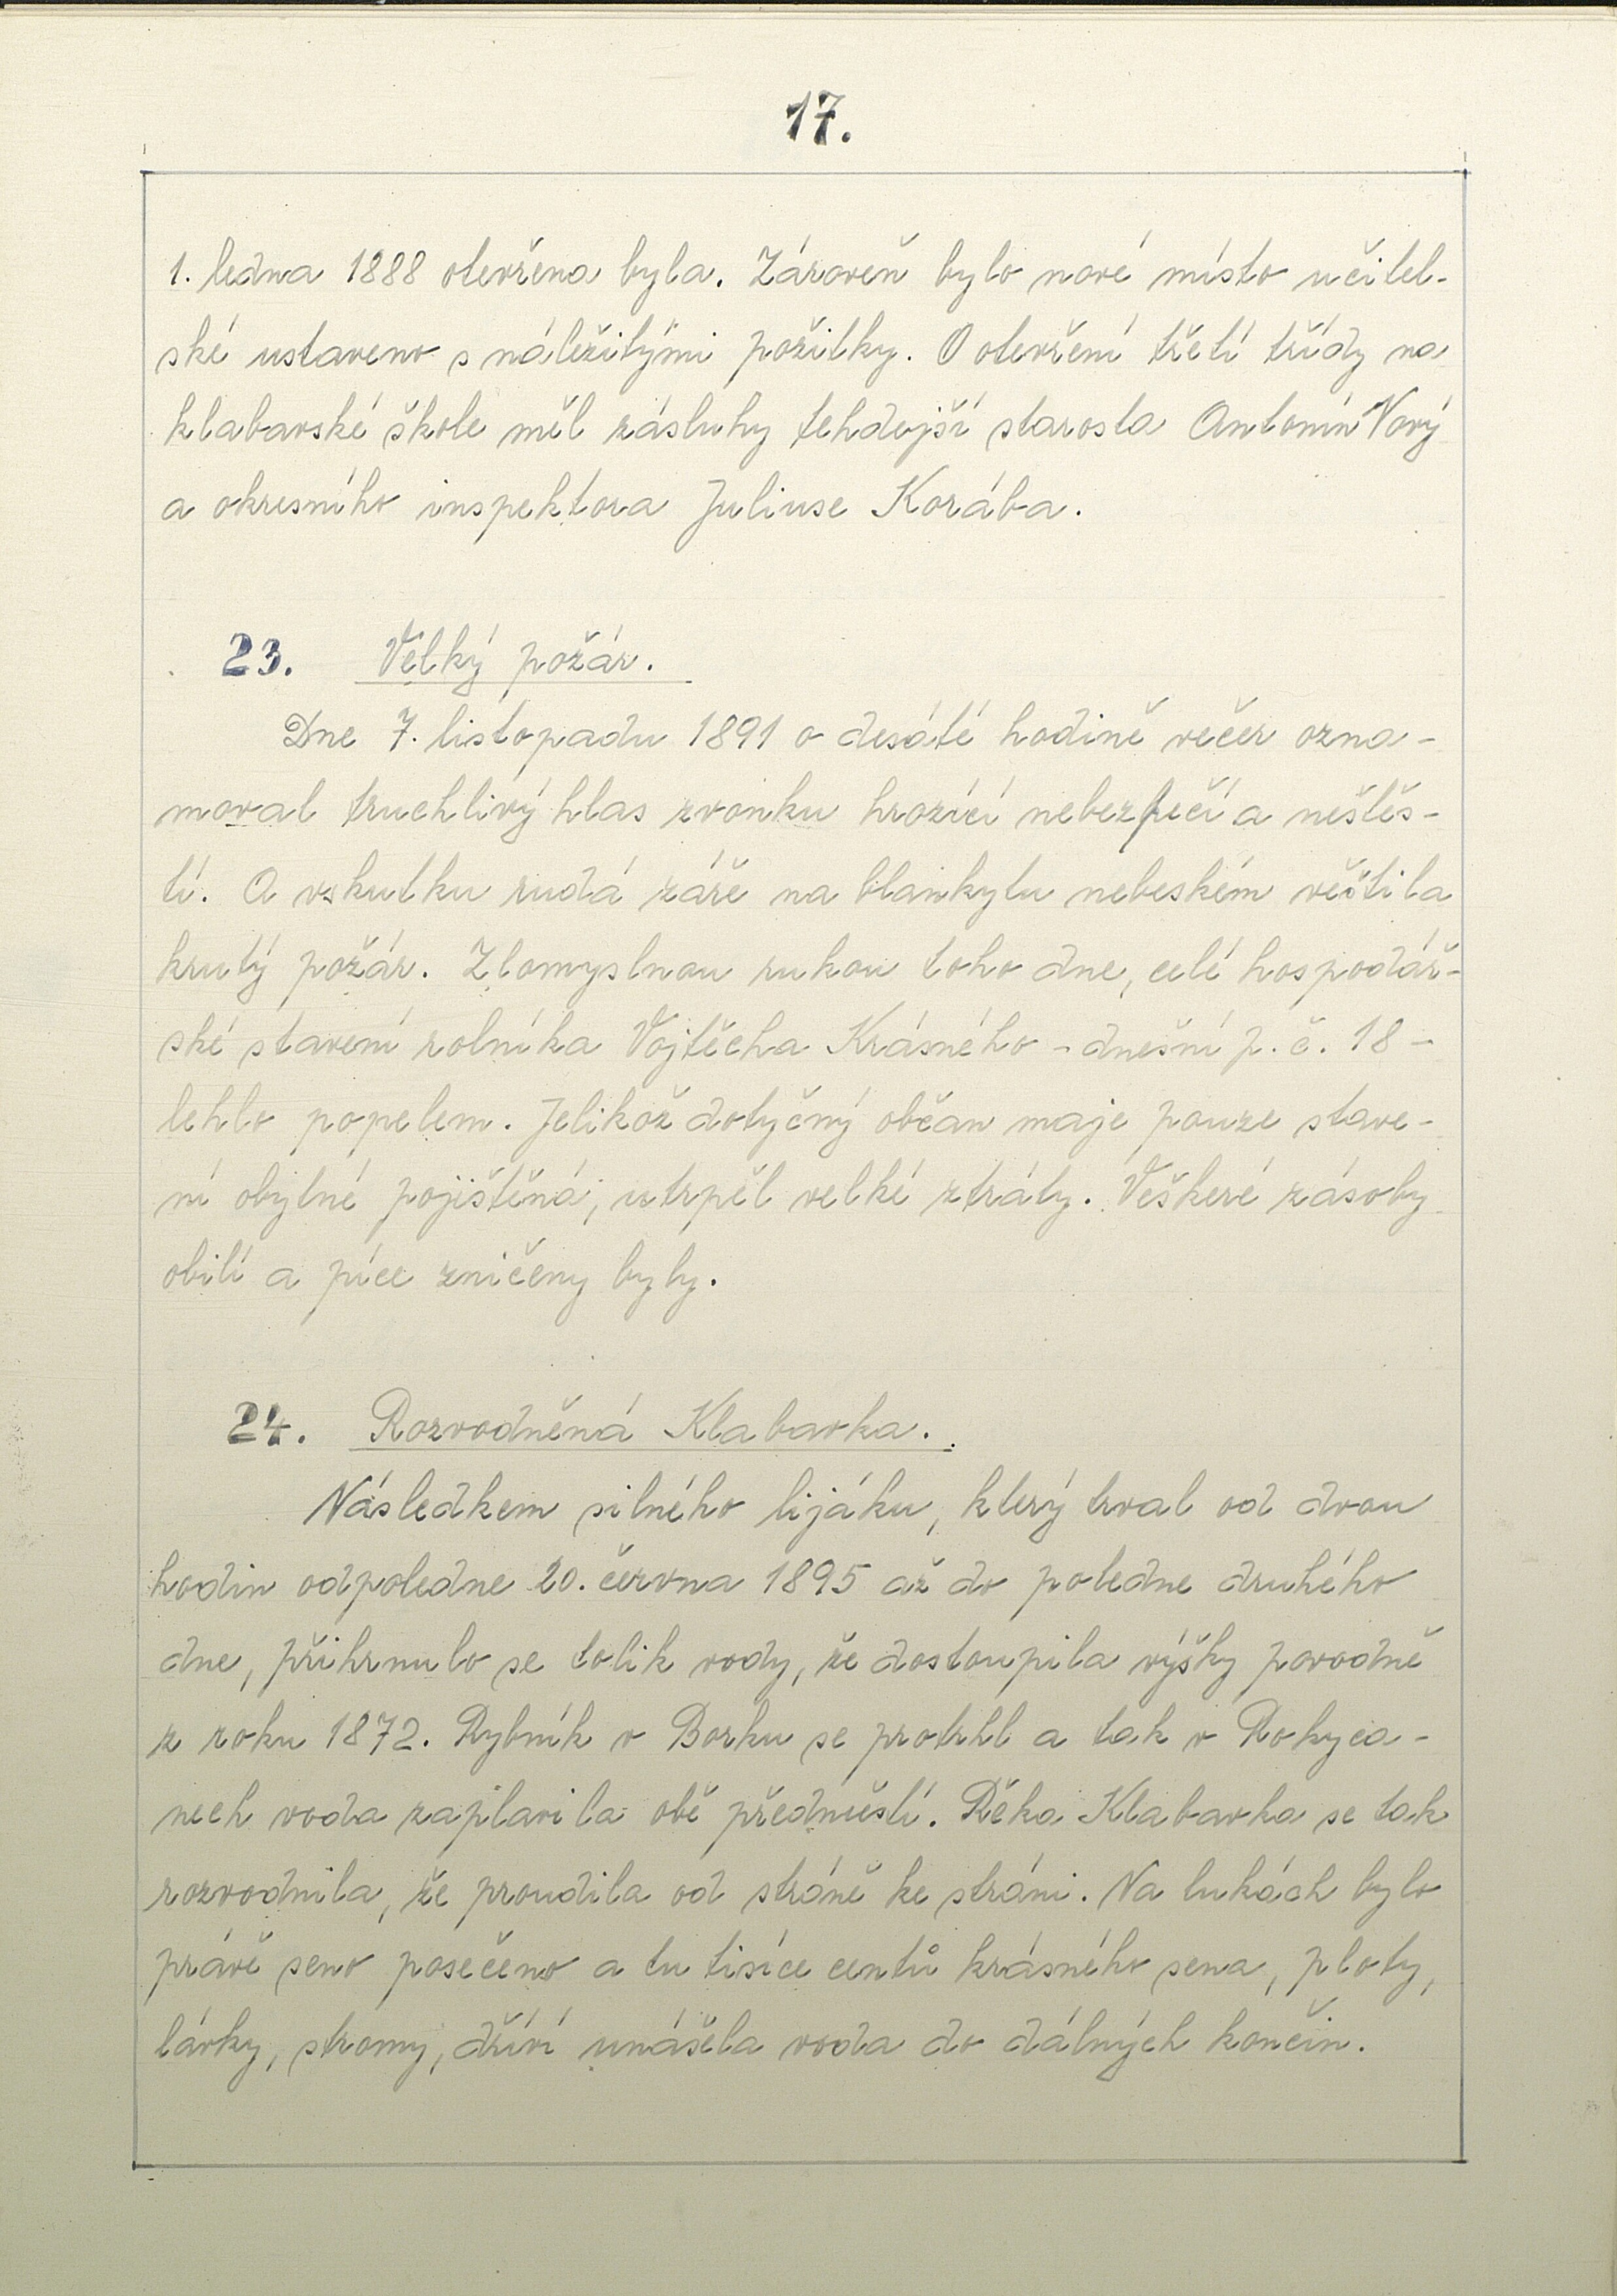 17.
1. ledna 1888 otevřena byla. Zároveň bylo nové místo učitel-
ské ustaveno s náležitými požitky. O otevření třetí třídy na
klabavské škole měl zásluhy tehdejší starosta Antonín Nový
a okresního inspektora Juliuse Korába.
23. Velký požár.
Dne 7. listopadu 1891 o desáté hodině večer ozna-
moval truchlivý hlas zvonku hrozící nebezpečí a neštěs-
tí. A vskutku rudá záře na blankytu nebeském věštila
krutý požár. Zlomyslnou rukou toho dne, celé hospodář-
ské stavení rolníka Vojtěcha Krásného - dnešní p. č. 18 -
lehlo popelem. Jelikož dotyčný občan maje pouze stave-
ní obytné pojištěná, utrpěl velké ztráty. Veškeré zásoby
obilí a píce zničeny byly.
24. Rozvodněná Klabavka.
Následkem silného lijáku, který trval od dvou
hodin odpoledne 20. června 1895 až do poledne druhého
dne, přihrnulo se tolik vody, že dostoupila výšky povodně
z roku 1872. Rybník v Borku se protrhl a tak v Rokyca-
nech voda zaplavila obě předměstí. Řěka Klabavka se tak
rozvodnila, že proudila od stráně ke stráni. Na lukách bylo
právě seno posečeno a tu tisíce centů krásného sena, ploty,
lávky, stromy, dříví unášela voda do dálných končin.